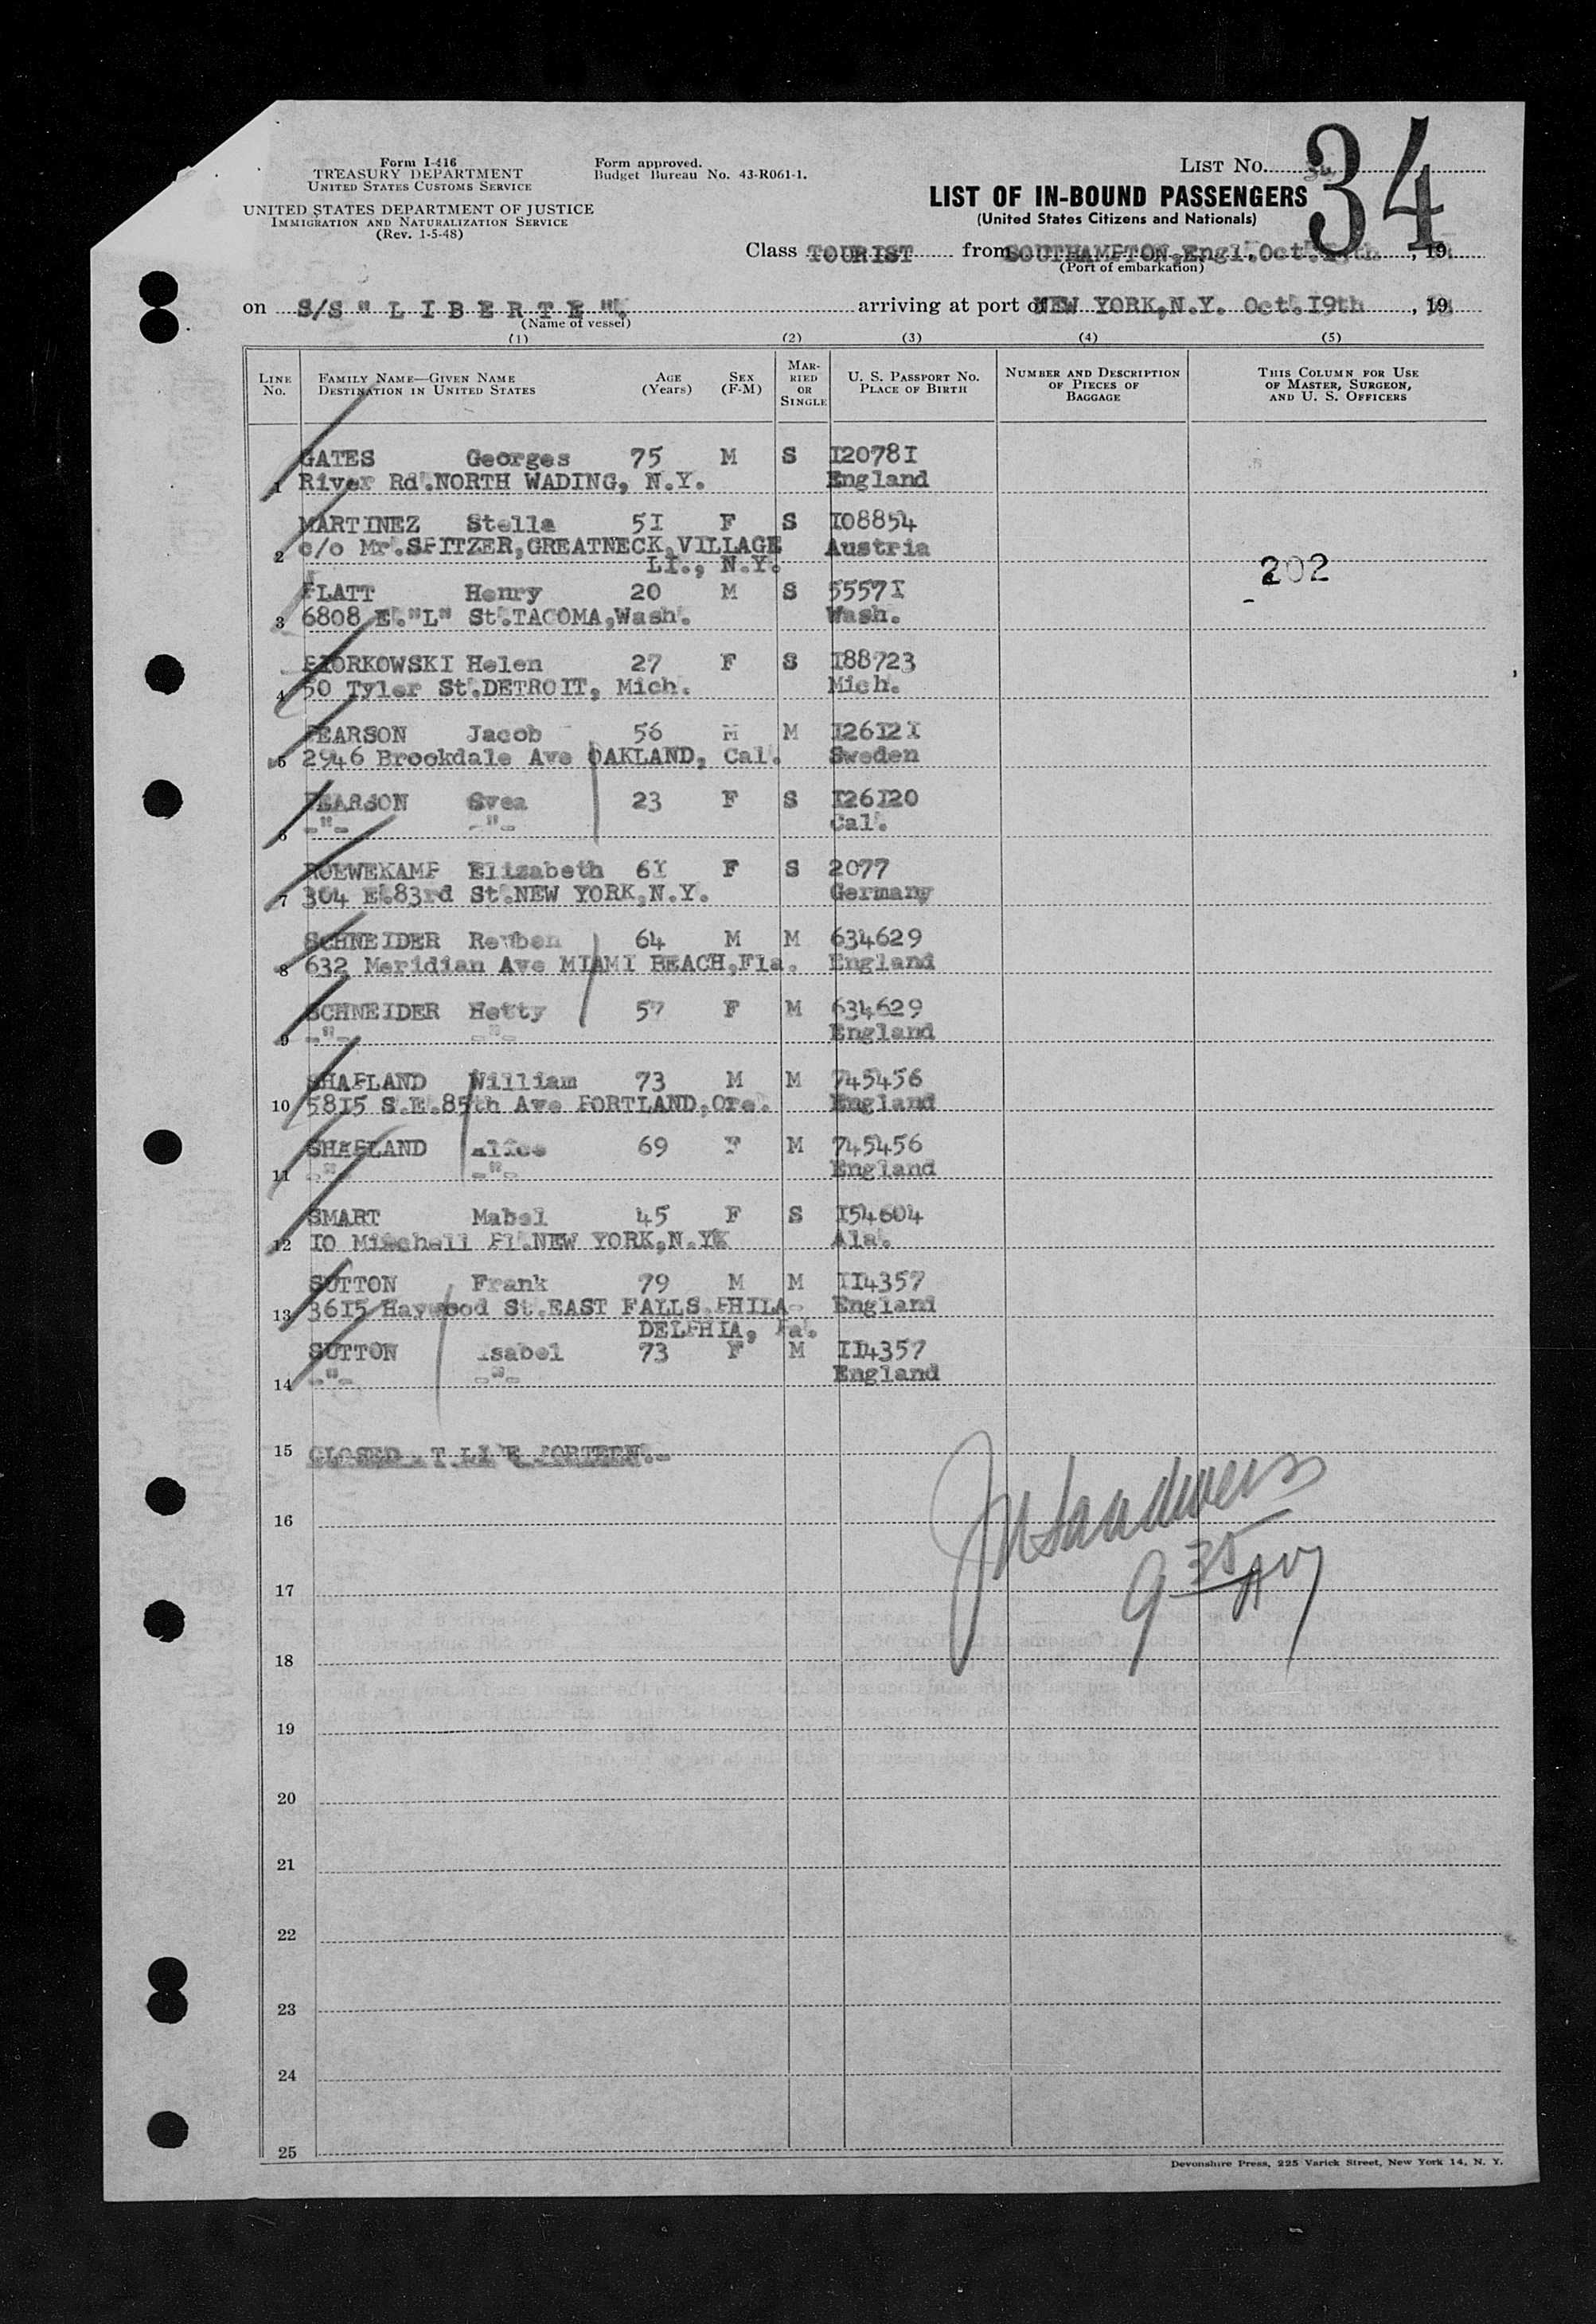 Form I-416
TREASURY DEPARTMENT
UNITED STATES CUSTOMS SERVICE
UNITED STATES DEPARTMENT OF JUSTICE
IMMIGRATION AND NATURALIZATION SERVICE
(Rev. 1-5-48)
Form approved.
Budget Bureau No. 43-R061-1.
LIST No. 34
LIST OF IN-BOUND PASSENGERS
(United States Citizens and Nationals)
Class TOURIST from SOUTHAMPTON,Engl.,Oct. , 19
(Port of embarkation)
on S/S " L I B E R T E ". arriving at port of NEW YORK,N.Y. Oct.I9th , 19
(Name of vessel)
(1) (2) (3) (4) (5)
LINE No. FAMILY NAME—GIVEN NAME DESTINATION IN UNITED STATES AGE (Years) SEX (F-M) MARRIED OR SINGLE U. S. PASSPORT No. PLACE OF BIRTH NUMBER AND DESCRIPTION OF PIECES OF BAGGAGE THIS COLUMN FOR USE OF MASTER, SURGEON, AND U. S. OFFICERS
GATES Georges 75 M S I2078I
1 River Rd.NORTH WADING, N.Y. England
MARTINEZ Stella 5I F S I08854
2 c/o Mr.SPITZER,GREATNECK,VILLAGE Austria
LI., N.Y.
202
PLATT Henry 20 M S 5557I
3 6808 E."L" St.TACOMA,Wash. Wash.
PIORKOWSKI Helen 27 F S I88723
4 50 Tyler St.DETROIT, Mich. Mich.
PEARSON Jacob 56 M M I26I2I
5 2946 Brookdale Ave OAKLAND, Cal. Sweden
PEARSON Svea 23 F S I26I20
6 -"- -"- Cal.
ROEWEKAMP Elizabeth 6I F S 2077
7 304 E.83rd St.NEW YORK,N.Y. Germany
SCHNEIDER Reuben 64 M M 634629
8 632 Meridian Ave MIAMI BEACH,Fla. England
SCHNEIDER Hetty 57 F M 634629
9 -"- -"- England
SHAPLAND William 73 M M 745456
10 58I5 S.E.85th Ave PORTLAND,Ore. England
SHAPLAND Alice 69 F M 745456
11 -"- -"- England
SMART Mabel 45 F S I54604
12 I0 Mitchell Pl.NEW YORK,N.Y. Ala.
SUTTON Frank 79 M M II4357
13 36I5 Haywood St.EAST FALLS.PHILA- England
DELPHIA, Pa.
SUTTON Isabel 73 F M II4357
14 -"- -"- England
15 CLOSED
16
17 9 35 AM
18
19
20
21
22
23
24
25
Devonshire Press, 225 Varick Street, New York 14, N. Y.